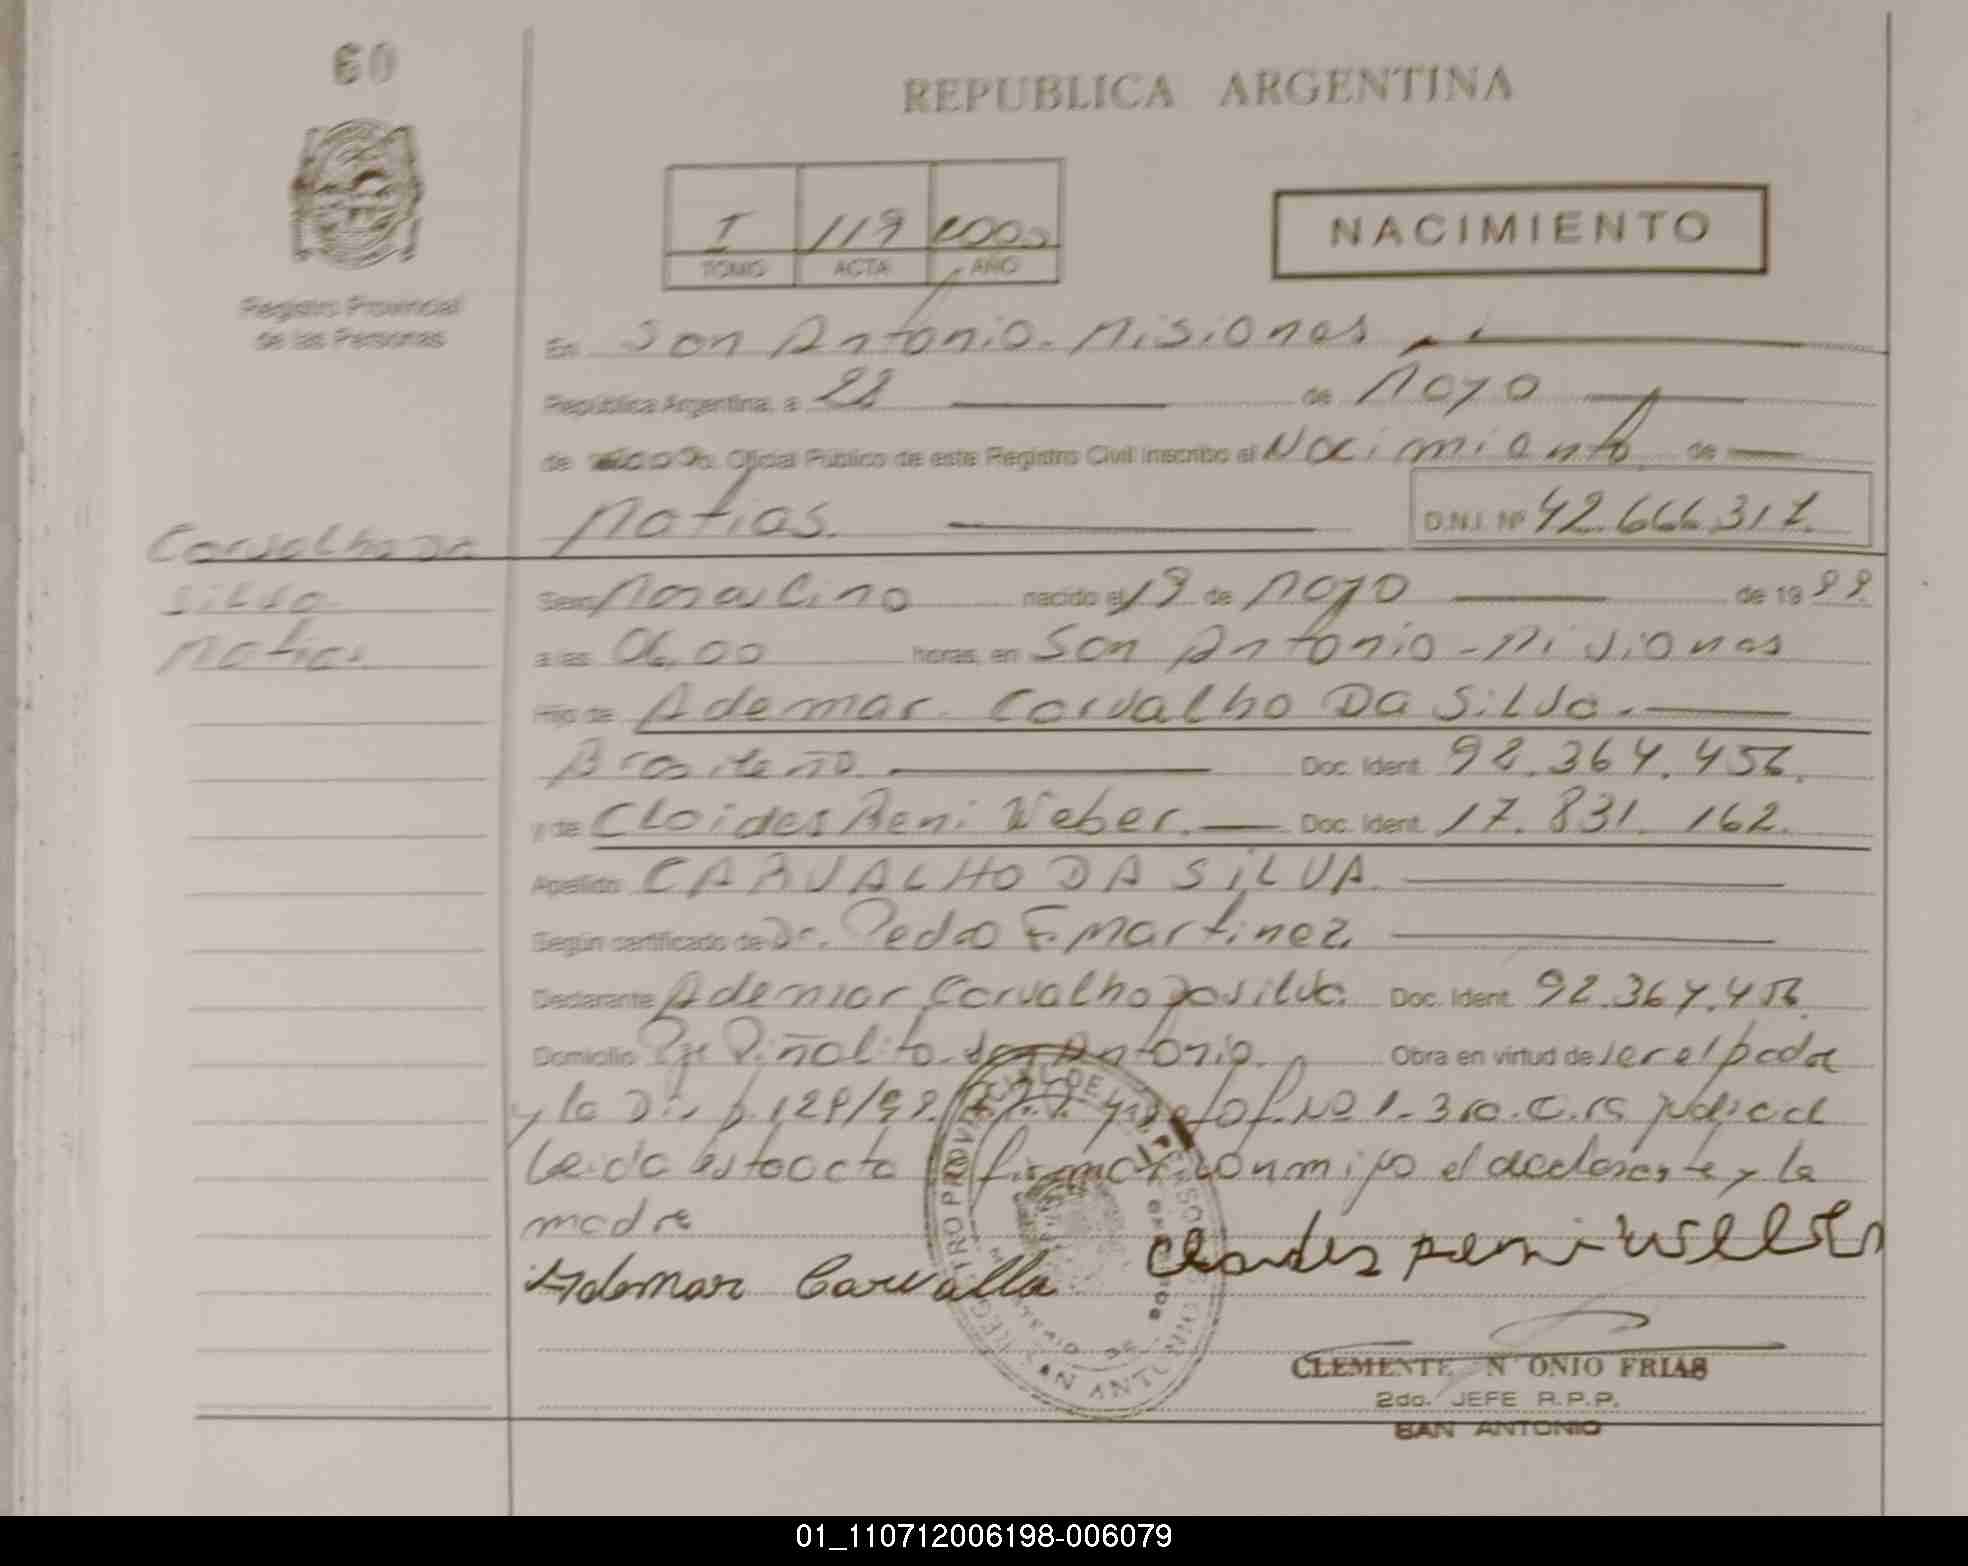 60
REPUBLICA ARGENTINA
I 119 2000
TOMO ACTA AÑO
NACIMIENTO
Registro Provincial
de las Personas
En San Antonio - Misiones
República Argentina, a 22 de Mayo
de 2000 Oficial Público de este Registro Civil inscribo el Nacimiento de
Matias. D.N.I. Nº 42.666.317.
Carvalho Da
Silva
Matias
Sexo Masculino nacido el 19 de Mayo de 19 99.
a las 06,00 horas, en San Antonio - Misiones
Hijo de Ademar Carvalho Da Silva.
Brasileño Doc. Ident. 92.364.456.
y de Cloides Reni Weber. Doc. Ident. 17.831.162.
Apellido CARVALHO DA SILVA.
Según certificado de Dr. Pedro F. Martinez.
Declarante Ademar Carvalho Da Silva. Doc. Ident. 92.364.456.
Domicilio Pje Piñalito - San Antonio. Obra en virtud de ser el padre
y la Dis. p. 129/99. Nº 1 - 3ra. C.
Leida esta acta firman conmigo el declarante y la
madre
Ademar Carvalho
REGISTRO PROVINCIAL DE LAS PERSONAS
SAN ANTONIO
CLEMENTE N ONIO FRIAS
2do. JEFE R.P.P.
SAN ANTONIO
01_110712006198-006079